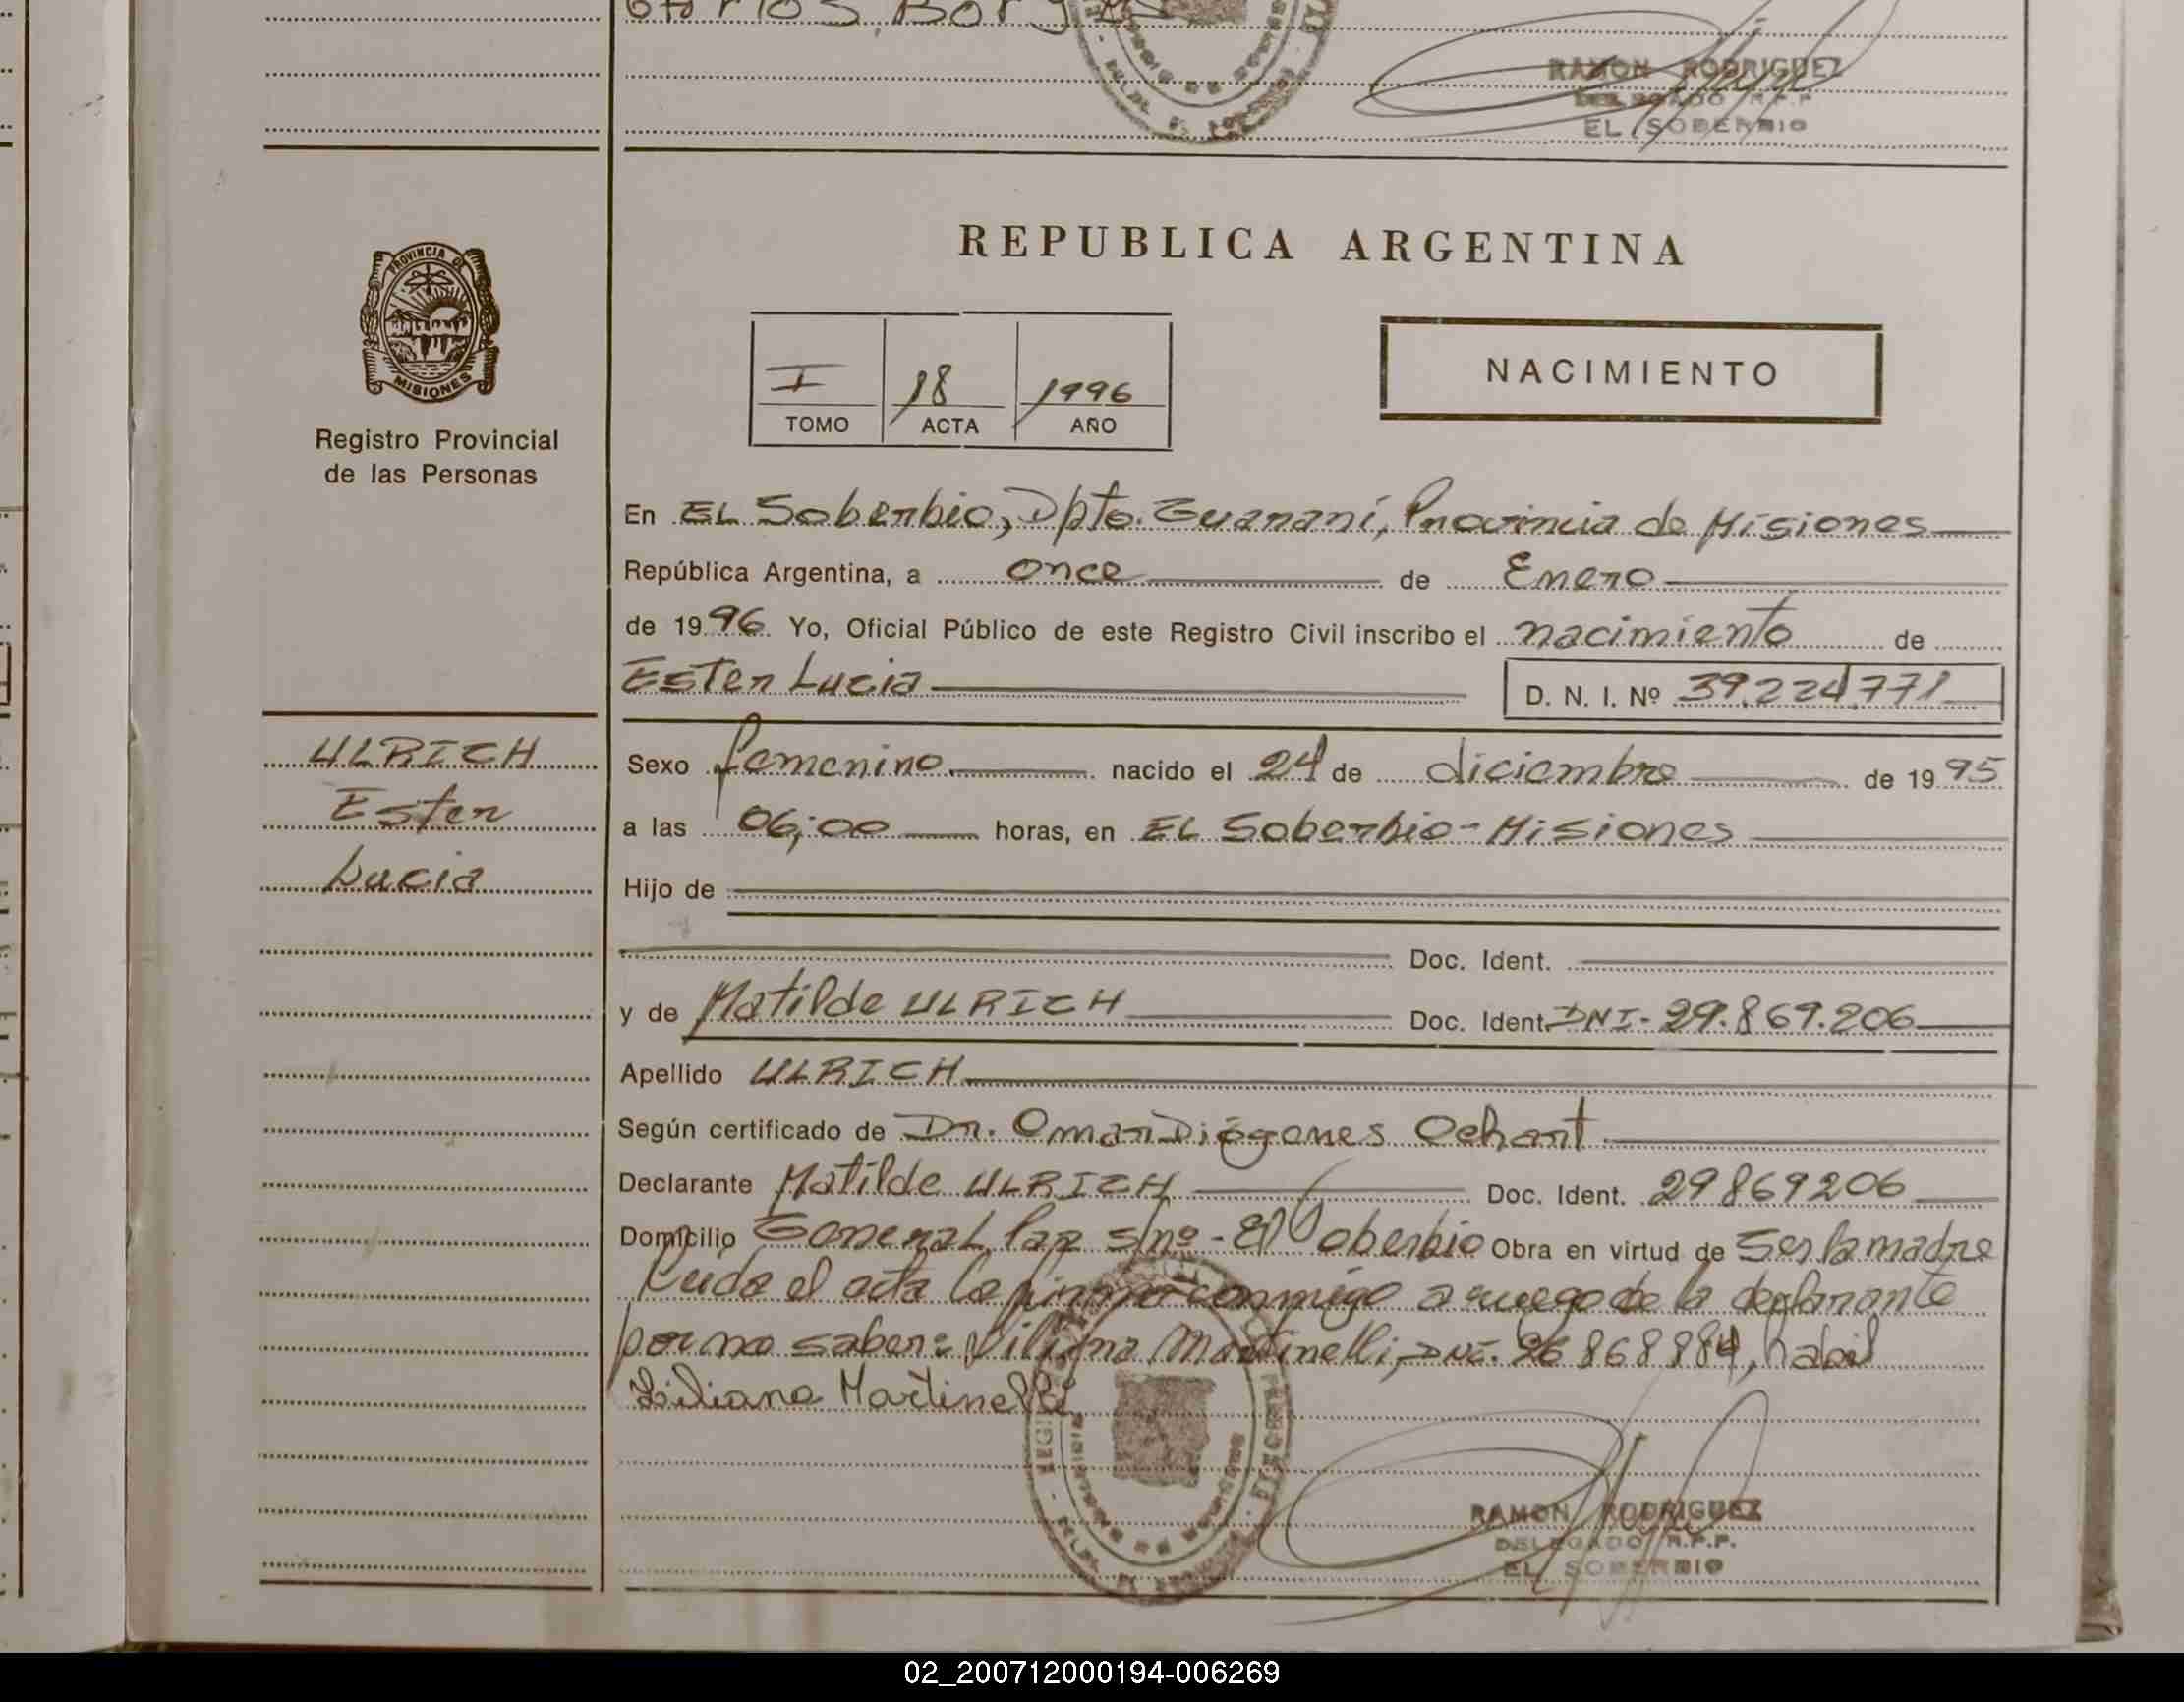 RAMON RODRIGUEZ
DELEGADO R.P.P
EL SOBERBIO
PROVINCIA DE
MISIONES
Registro Provincial
de las Personas
REPUBLICA ARGENTINA
I 18 1996
TOMO ACTA AÑO
NACIMIENTO
En EL Soberbio, Dpto. Guaraní, Provincia de Misiones
República Argentina, a once de Enero
de 1996 Yo, Oficial Público de este Registro Civil inscribo el nacimiento de
Ester Lucia D. N. I. Nº 39.224.771
ULRICH
Ester
Lucia
Sexo femenino nacido el 24 de diciembre de 1995
a las 06:00 horas, en EL Soberbio - Misiones
Hijo de
Doc. Ident.
y de Matilde ULRICH Doc. Ident. DNI - 29.869.206
Apellido ULRICH
Según certificado de Dr. Omar Diógenes Ochant
Declarante Matilde ULRICH Doc. Ident. 29869206
Domicilio General Paz s/nº - El Soberbio Obra en virtud de Ser la madre
Leida el acta la firma conmigo a ruego de la declarante
por no saber: Liliana Martinelli, DNI. 26868884, habil
Liliana Martinelli
RAMON RODRIGUEZ
DELEGADO R.P.P.
EL SOBERBIO
02_200712000194-006269